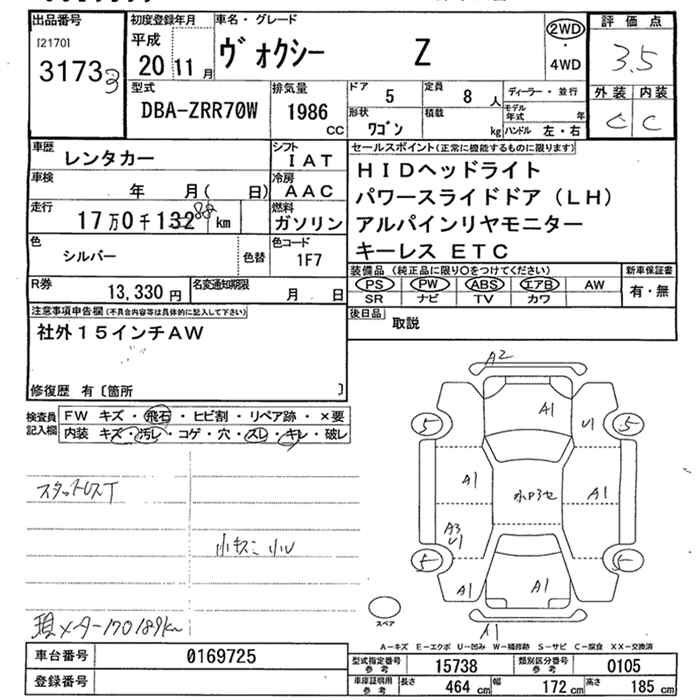 出品番号 初度登録年月 車名・グレード 評価点
[2170] 平成 ヴォクシー Z 2WD ・ 4WD 3.5
3173 20 11 月
型式 排気量 ドア 5 定員 8 人 ディーラー・並行 外装 内装
DBA-ZRR70W 1986 CC 形状 ワゴン 積載 kg モデル年式 年 C C
ハンドル 左・右
車歴 レンタカー シフト IAT セールスポイント(正常に機能するものに限ります)
車検 年 月( 日) 冷房 AAC HIDヘッドライト
パワースライドドア(LH)
走行 17万0千132 km 燃料 ガソリン アルパインリヤモニター
キーレス ETC
色 シルバー 色替 色コード 1F7
装備品(純正品に限り○をつけてください) 新車保証書
R券 13,330円 名変通知期限 月 日 PS PW ABS エアB AW 有・無
SR ナビ TV カワ
注意事項申告欄(不具合内容等は具体的に記入して下さい) 後日品 取説
社外15インチAW
修復歴 有〔箇所 〕
検査員記入欄 FW キズ・飛石・ヒビ割・リペア跡・×要
内装 キズ・汚レ・コゲ・穴・スレ・キレ・破レ
A2
A1 U1
5 5
A1 A1
A3
U1
5 5
A1 A1
スペア
A1
現メーター170189km
A-キズ E-エクボ U-凹み W-補修跡 S-サビ C-腐食 XX-交換済
車台番号 0169725 型式指定番号 参考 15738 類別区分番号 参考 0105
登録番号 車庫証明用 参考 長さ 464 cm 幅 172 cm 高さ 185 cm